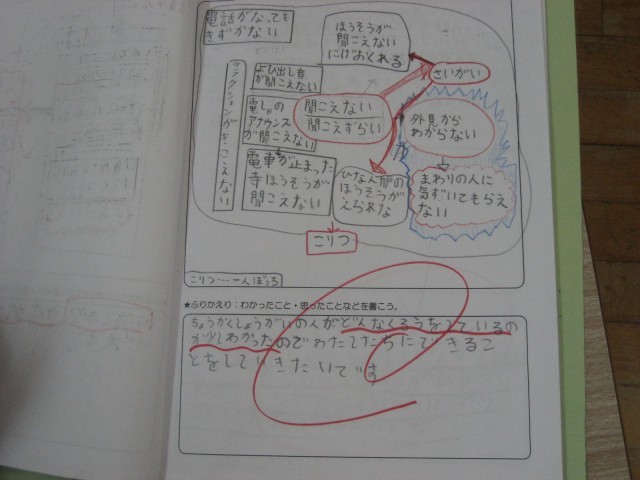 電話がなっても
きずかない
ほうそうが
聞こえない
にげおくれる
さいがい
クラクションがきこえない
よび出し音
が聞こえない
電しゃの
アナウンス
が聞こえない
聞こえない
聞こえずらい
外見から
わからない
電車が止まった
寺ほうそうが
聞こえない
ひなん所の
ほうそうが
えられな
まわりの人に
気ずいてもらえ
ない
こりつ
こりつ……一人ぼっち
★ふりかえり：わかったこと・思ったことなどを書こう。
ちょうかくしょうがいの人がどんなくろうをしているの
か少しわかったのでわたしたちにできるこ
とをしていきたいです